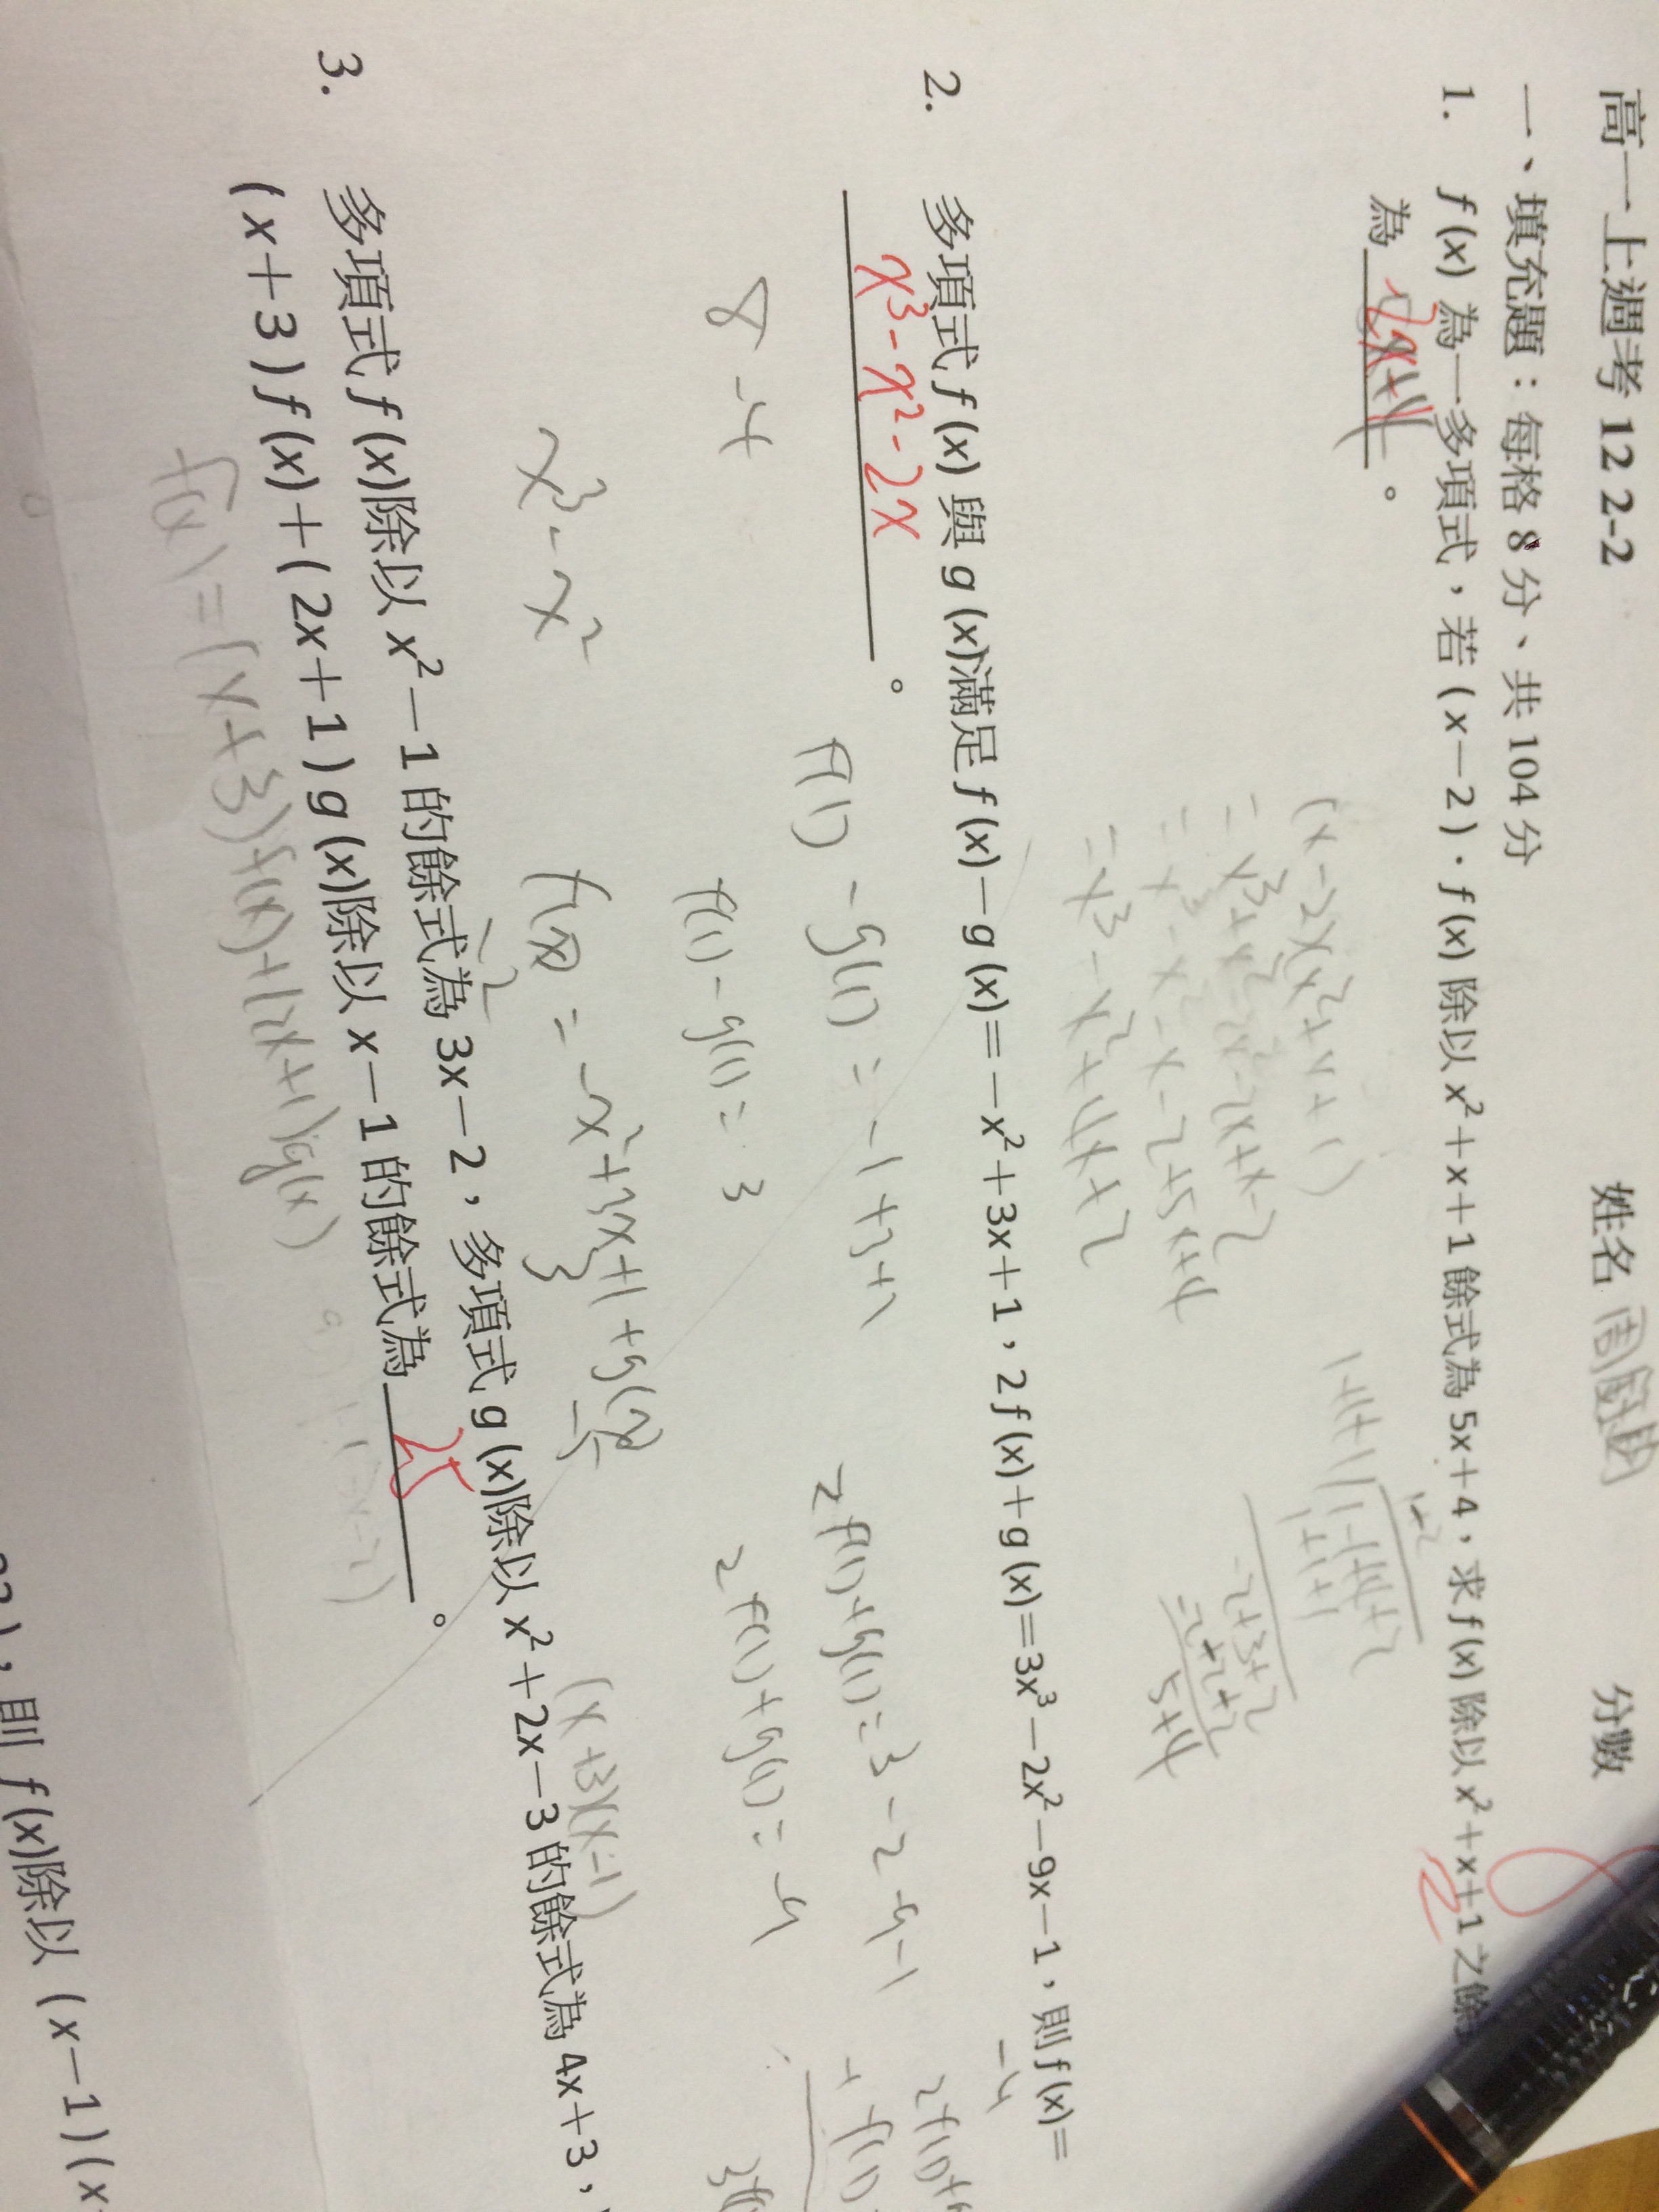 高一上週考 12 2-2 姓名 分數
一、填充題：每格 8 分、共 104 分
1. f (x) 為一多項式，若 ( x－2 )．f (x) 除以 x²＋x＋1 餘式為 5x＋4，求 f (x) 除以 x²＋x＋1 之餘
為 2x+4 。
(x-2)(x²+x+1)
= x³+x²-2x²-2x+x-2
= x³-x²-x-2+5x+4
= x³-x²+4x+2
1+1+1
1-1+4+2
1+1+1
-2+3+2
-2-2-2
5+4
2. 多項式 f (x) 與 g (x)滿足 f (x)－g (x)＝－x²＋3x＋1，2 f (x)＋g (x)＝3x³－2x²－9x－1，則 f (x)＝
x³-x²-2x 。
f(1) - g(1) = -1+3+1
2f(1)+g(1)=3-2-9-1
8-4
f(1)-g(1)=3
2f(1)+g(1)=-9
x³-x²
f(x) = -x²+3x+1+g(x)
(x+3)(x-1)
3. 多項式 f (x)除以 x²－1 的餘式為 3x－2，多項式 g (x)除以 x²＋2x－3 的餘式為 4x＋3，
( x＋3 ) f (x)＋( 2x＋1 ) g (x)除以 x－1 的餘式為 25 。
f(x) = (x+3)f(x)+(2x+1)g(x)
則 f (x)除以 (x－1)